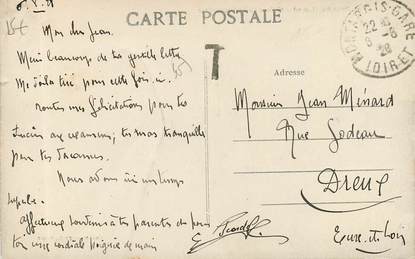 CARTE POSTALE
Mon cher Jean
Merci beaucoup de ta gentille lettre
Me voilà tiré pour cette fois-ci.
toutes nos félicitations pour ton
succès aux examens, tu vas tranquille
pour tes vacances.
Nous avons ici un temps
superbe.
affectueux souvenirs à tes parents et pour
toi une cordiale poignée de main
T
MONTARGIS-GARE
LOIRET
22
Adresse
Monsieur Jean Ménard
Rue Godeau
Dreux
Eure-et-Loir